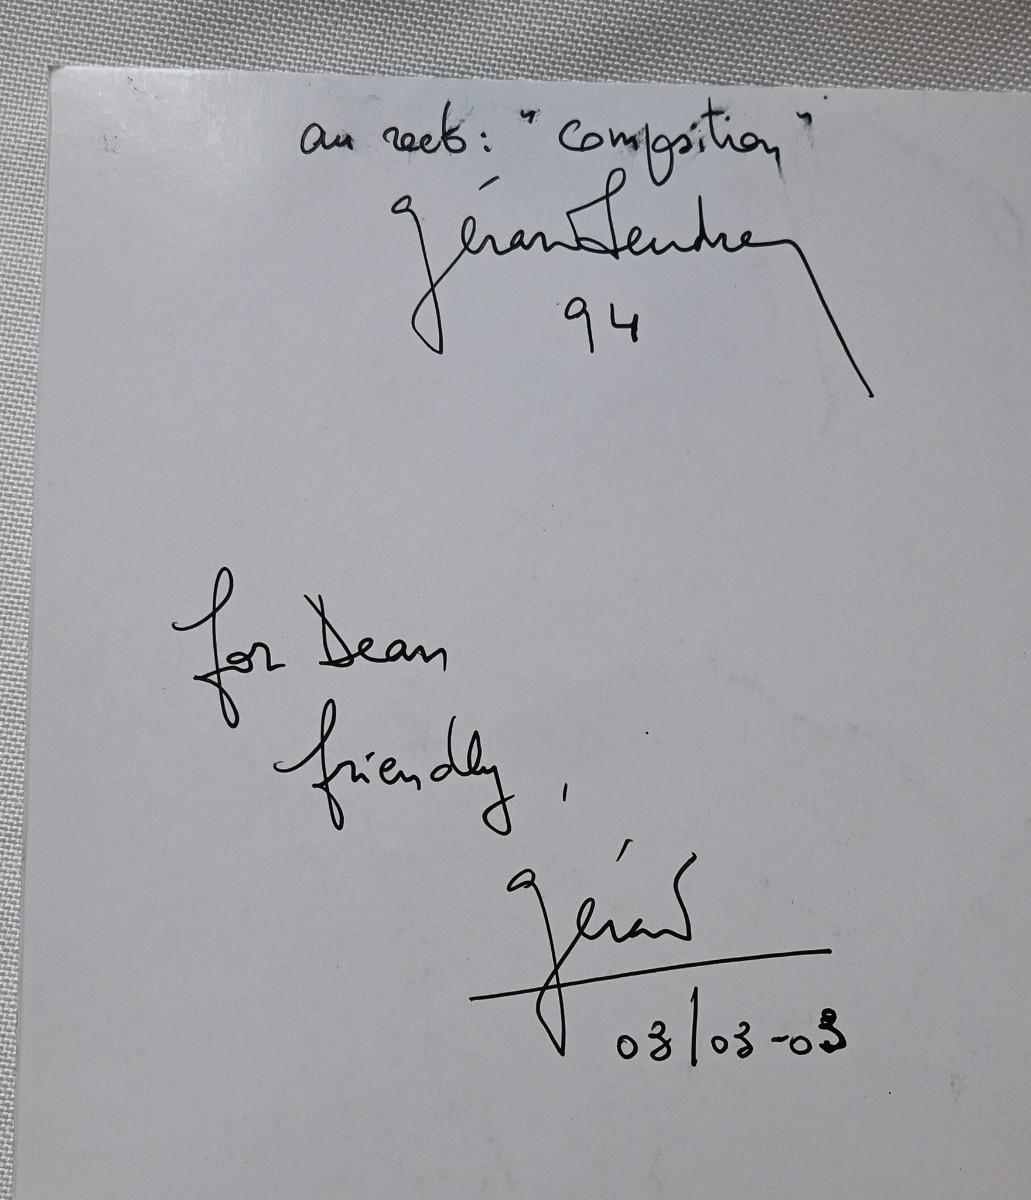 au recto : "Composition"
Gérard Lendre
94
for Dean
friendly,
Gérard
03/03-03